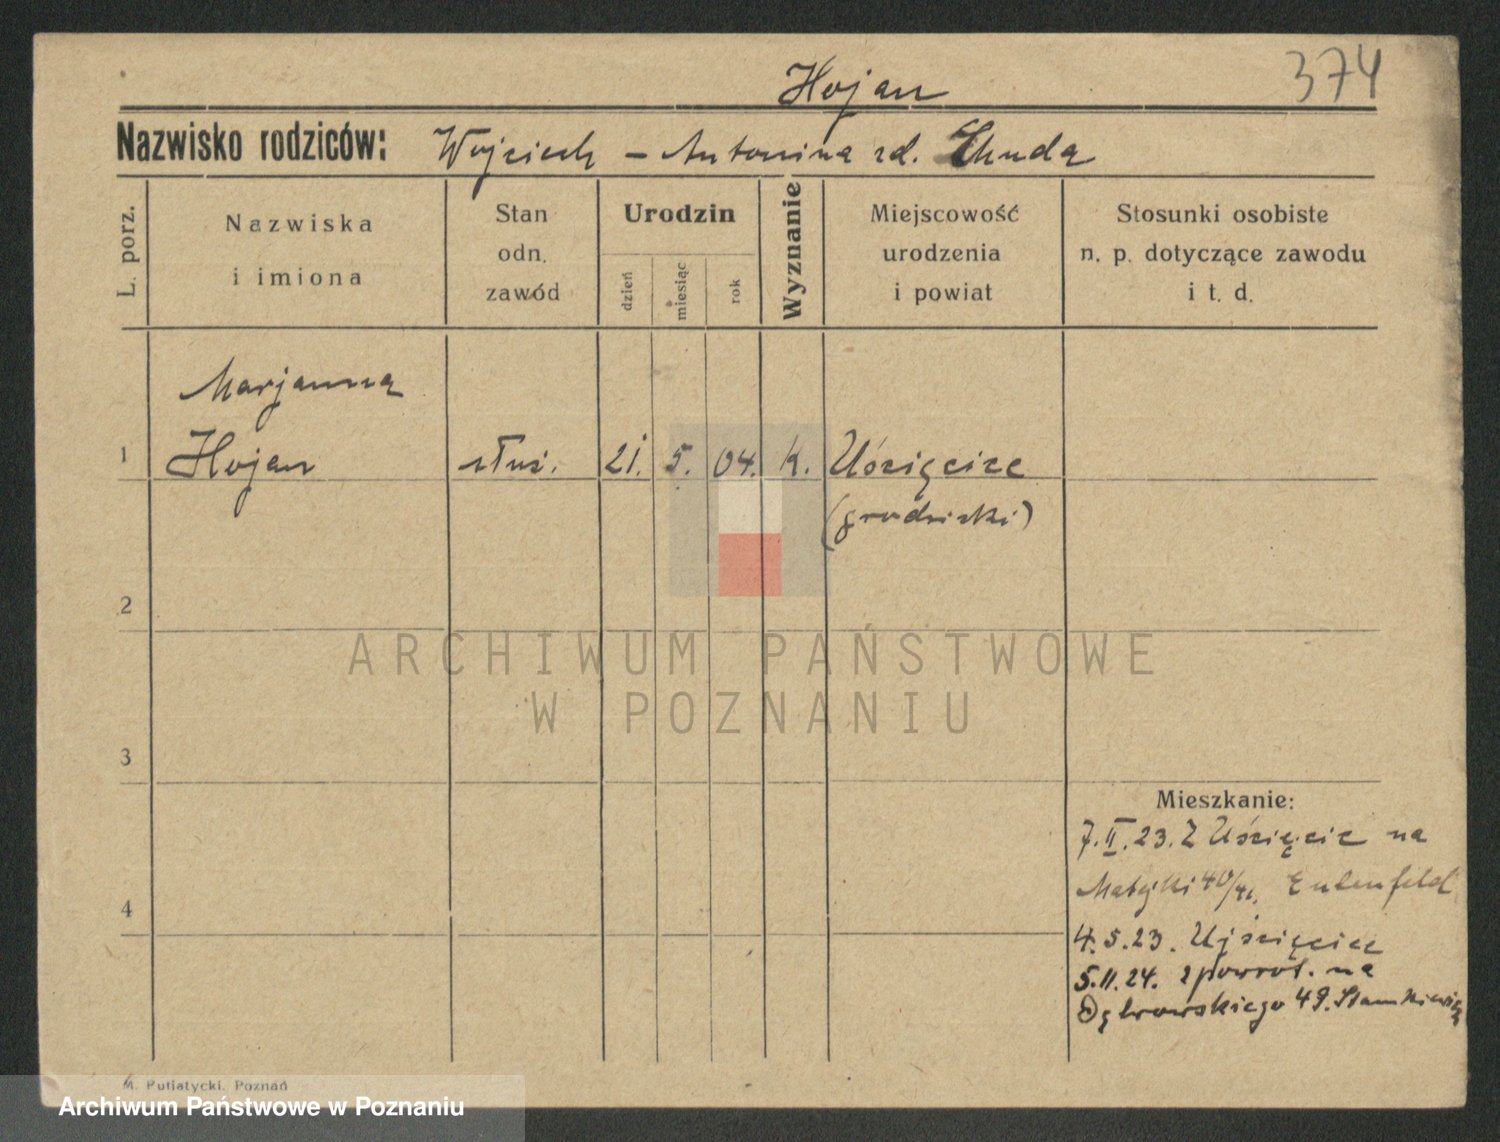 374
Hojan
Nazwisko rodziców: Wojciech - Antonina zd. Chuda
L. porz.
Nazwiska i imiona
Stan odn. zawód
Urodzin
dzień
miesiąc
rok
Wyznanie
Miejscowość urodzenia i powiat
Stosunki osobiste n. p. dotyczące zawodu i t. d.
Marjanna
1 Hojan służ. 21. 5. 04. k. Uścięcice
(grodziski)
2
ARCHIWUM PAŃSTWOWE
W POZNANIU
3
Mieszkanie:
7.II.23. Z Uścięcic na
Matejki 40/41, Eulenfeld
4
4.5.23. Ujścięcice
5.11.24. z powrot. na
Dąbrowskiego 49. Stankiewicz
M. Putiatycki, Poznań
Archiwum Państwowe w Poznaniu